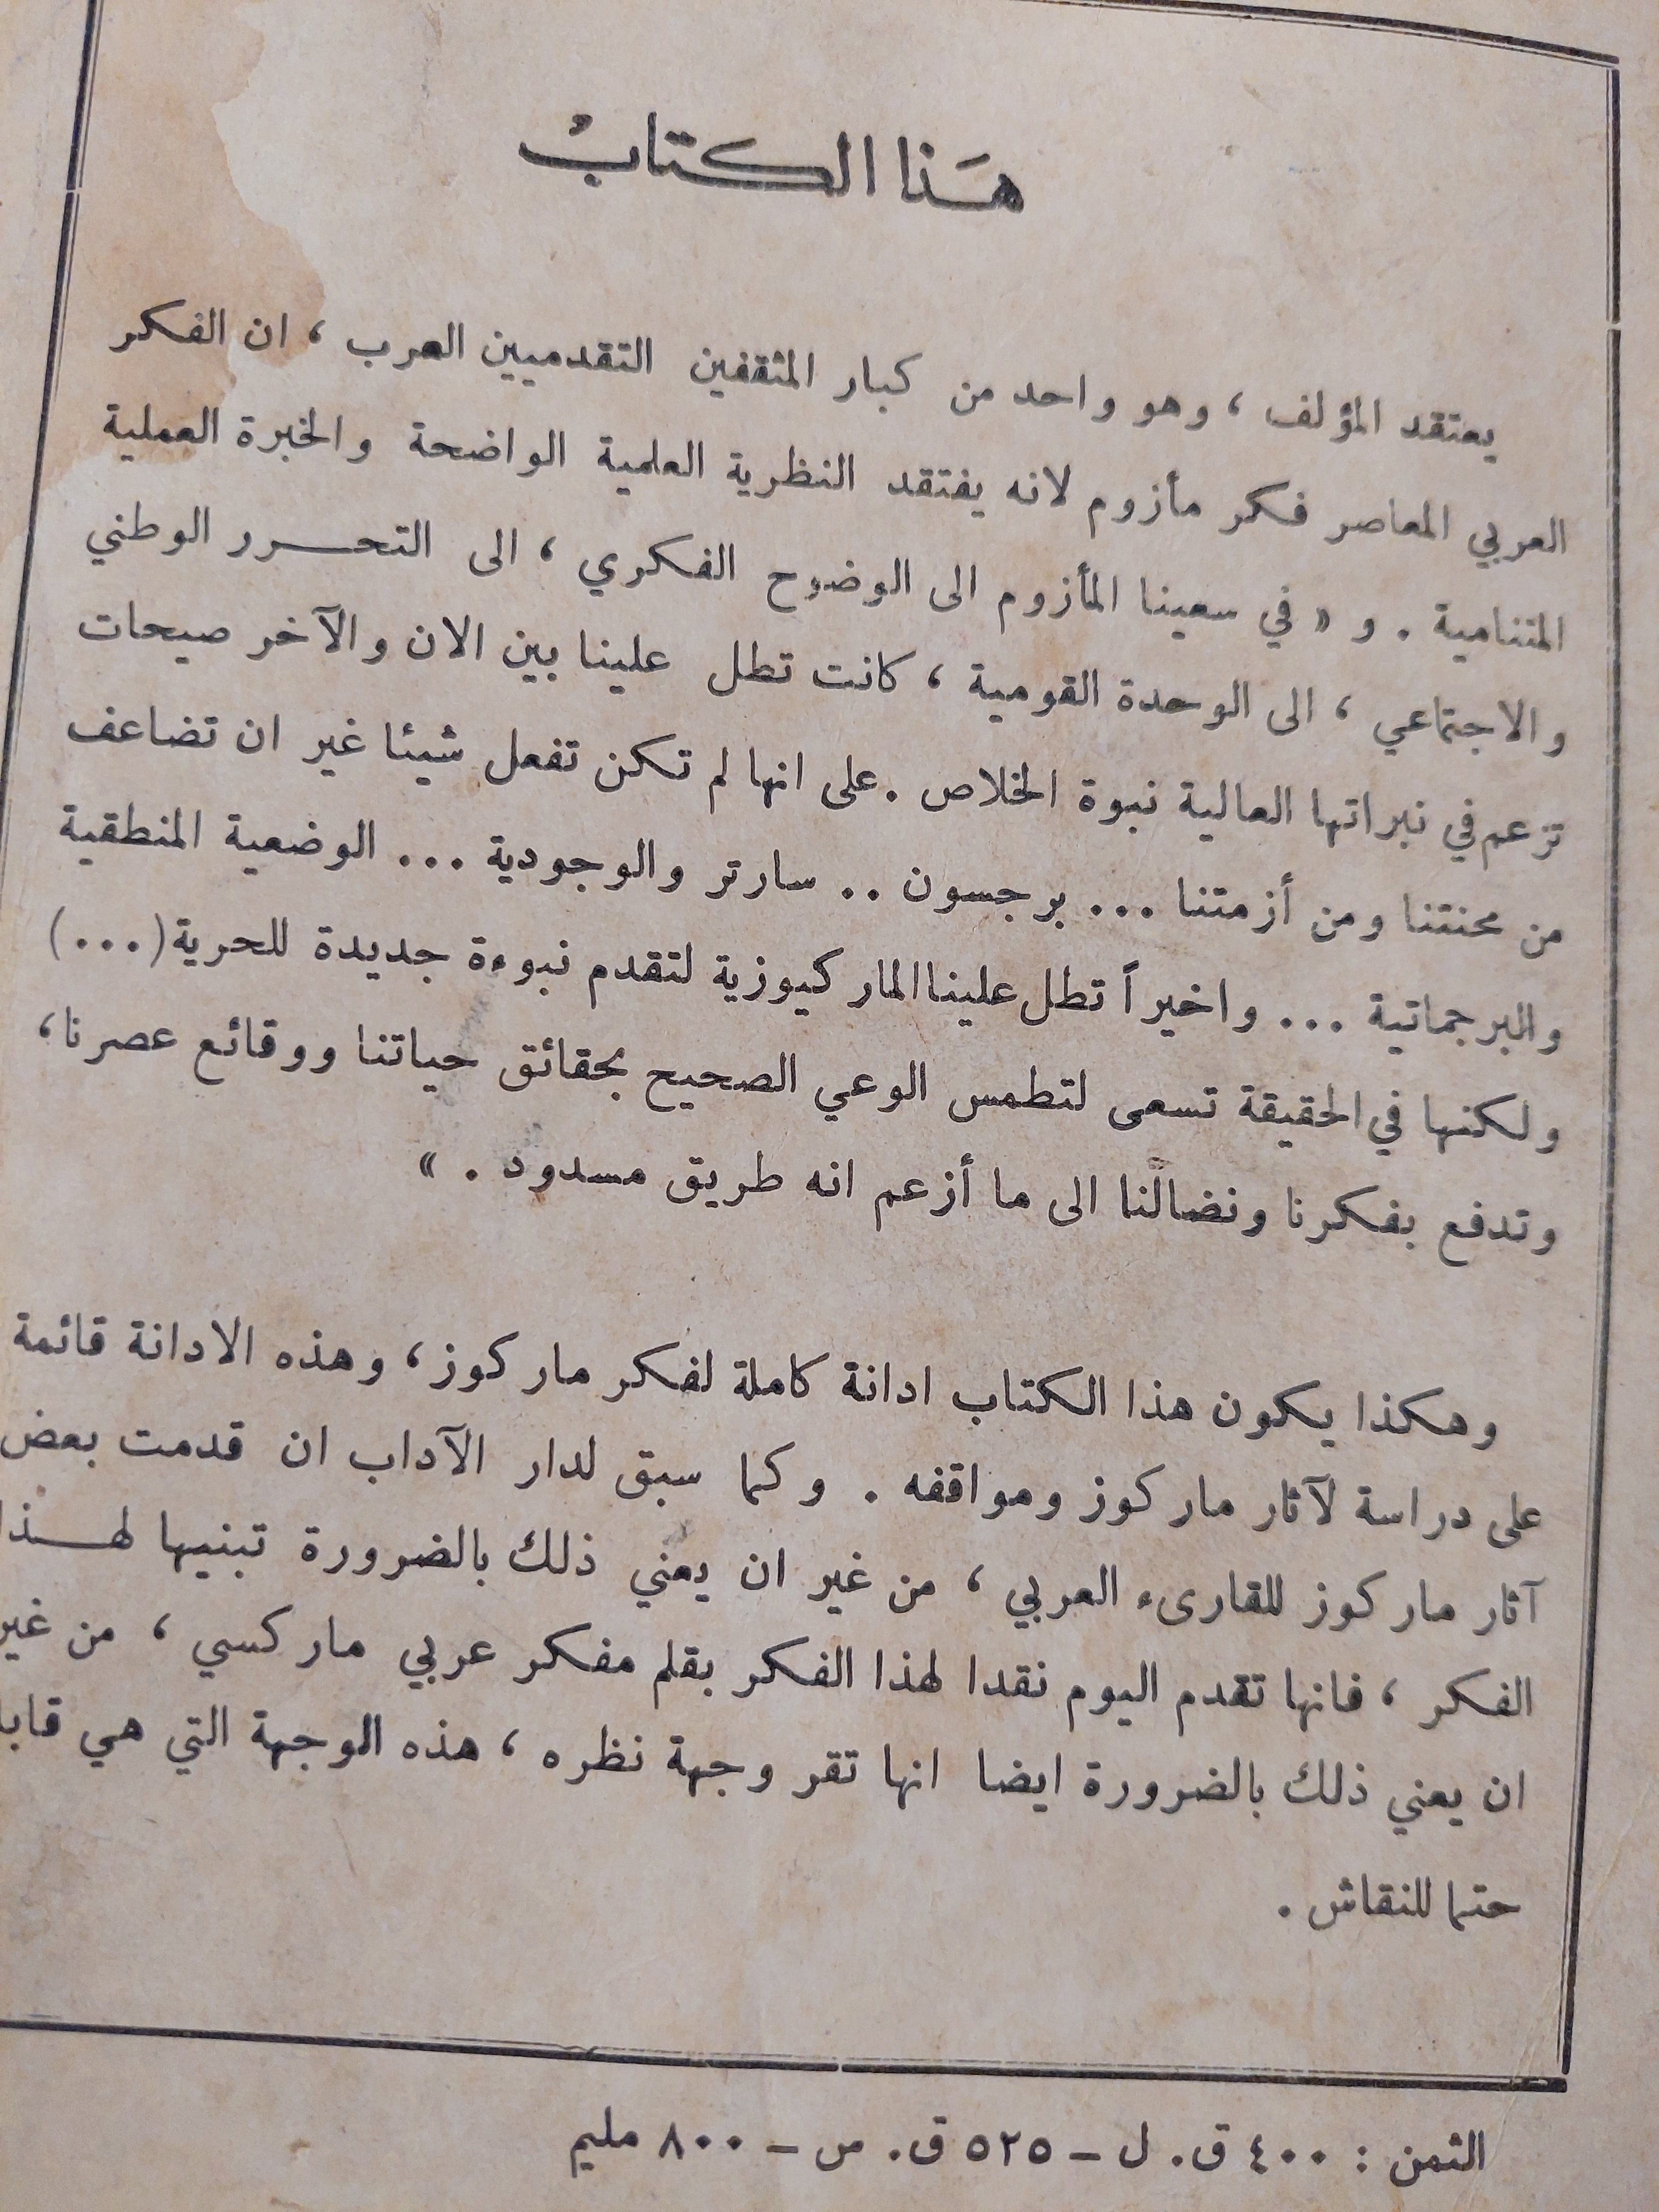 هَذا الكتابْ
يعتقد المؤلف ، وهو واحد من كبار المثقفين التقدميين العرب ، ان الفكر
العربي المعاصر فكر مأزوم لانه يفتقد النظرية العلمية الواضحة والخبرة العملية
المتنامية . و « في سعينا المأزوم الى الوضوح الفكري ، الى التحـــرر الوطني
والاجتماعي ، الى الوحدة القومية ، كانت تطل علينا بين الان والآخر صيحات
تزعم في نبراتها العالية نبوة الخلاص . على انها لم تكن تفعل شيئا غير ان تضاعف
من محنتنا ومن أزمتنا ... برجسون .. سارتر والوجودية ... الوضعية المنطقية
والبرجماتية ... واخيراً تطل علينا الماركيوزية لتقدم نبوءة جديدة للحرية (...)
ولكنها في الحقيقة تسعى لتطمس الوعي الصحيح بحقائق حياتنا ووقائع عصرنا،
وتدفع بفكرنا ونضالنا الى ما أزعم انه طريق مسدود . »
وهكذا يكون هذا الكتاب ادانة كاملة لفكر ماركوز، وهذه الادانة قائمة
على دراسة لآثار ماركوز ومواقفه . وكما سبق لدار الآداب ان قدمت بعض
آثار ماركوز للقارىء العربي ، من غير ان يعني ذلك بالضرورة تبنيها لهـــذا
الفكر ، فانها تقدم اليوم نقدا لهذا الفكر بقلم مفكر عربي ماركسي ، من غير
ان يعني ذلك بالضرورة ايضا انها تقر وجهة نظره ، هذه الوجهة التي هي
حتما للنقاش .
الثمن : ٤٠٠ ق. ل – ٥٢٥ ق. س – ٨٠٠ مليم